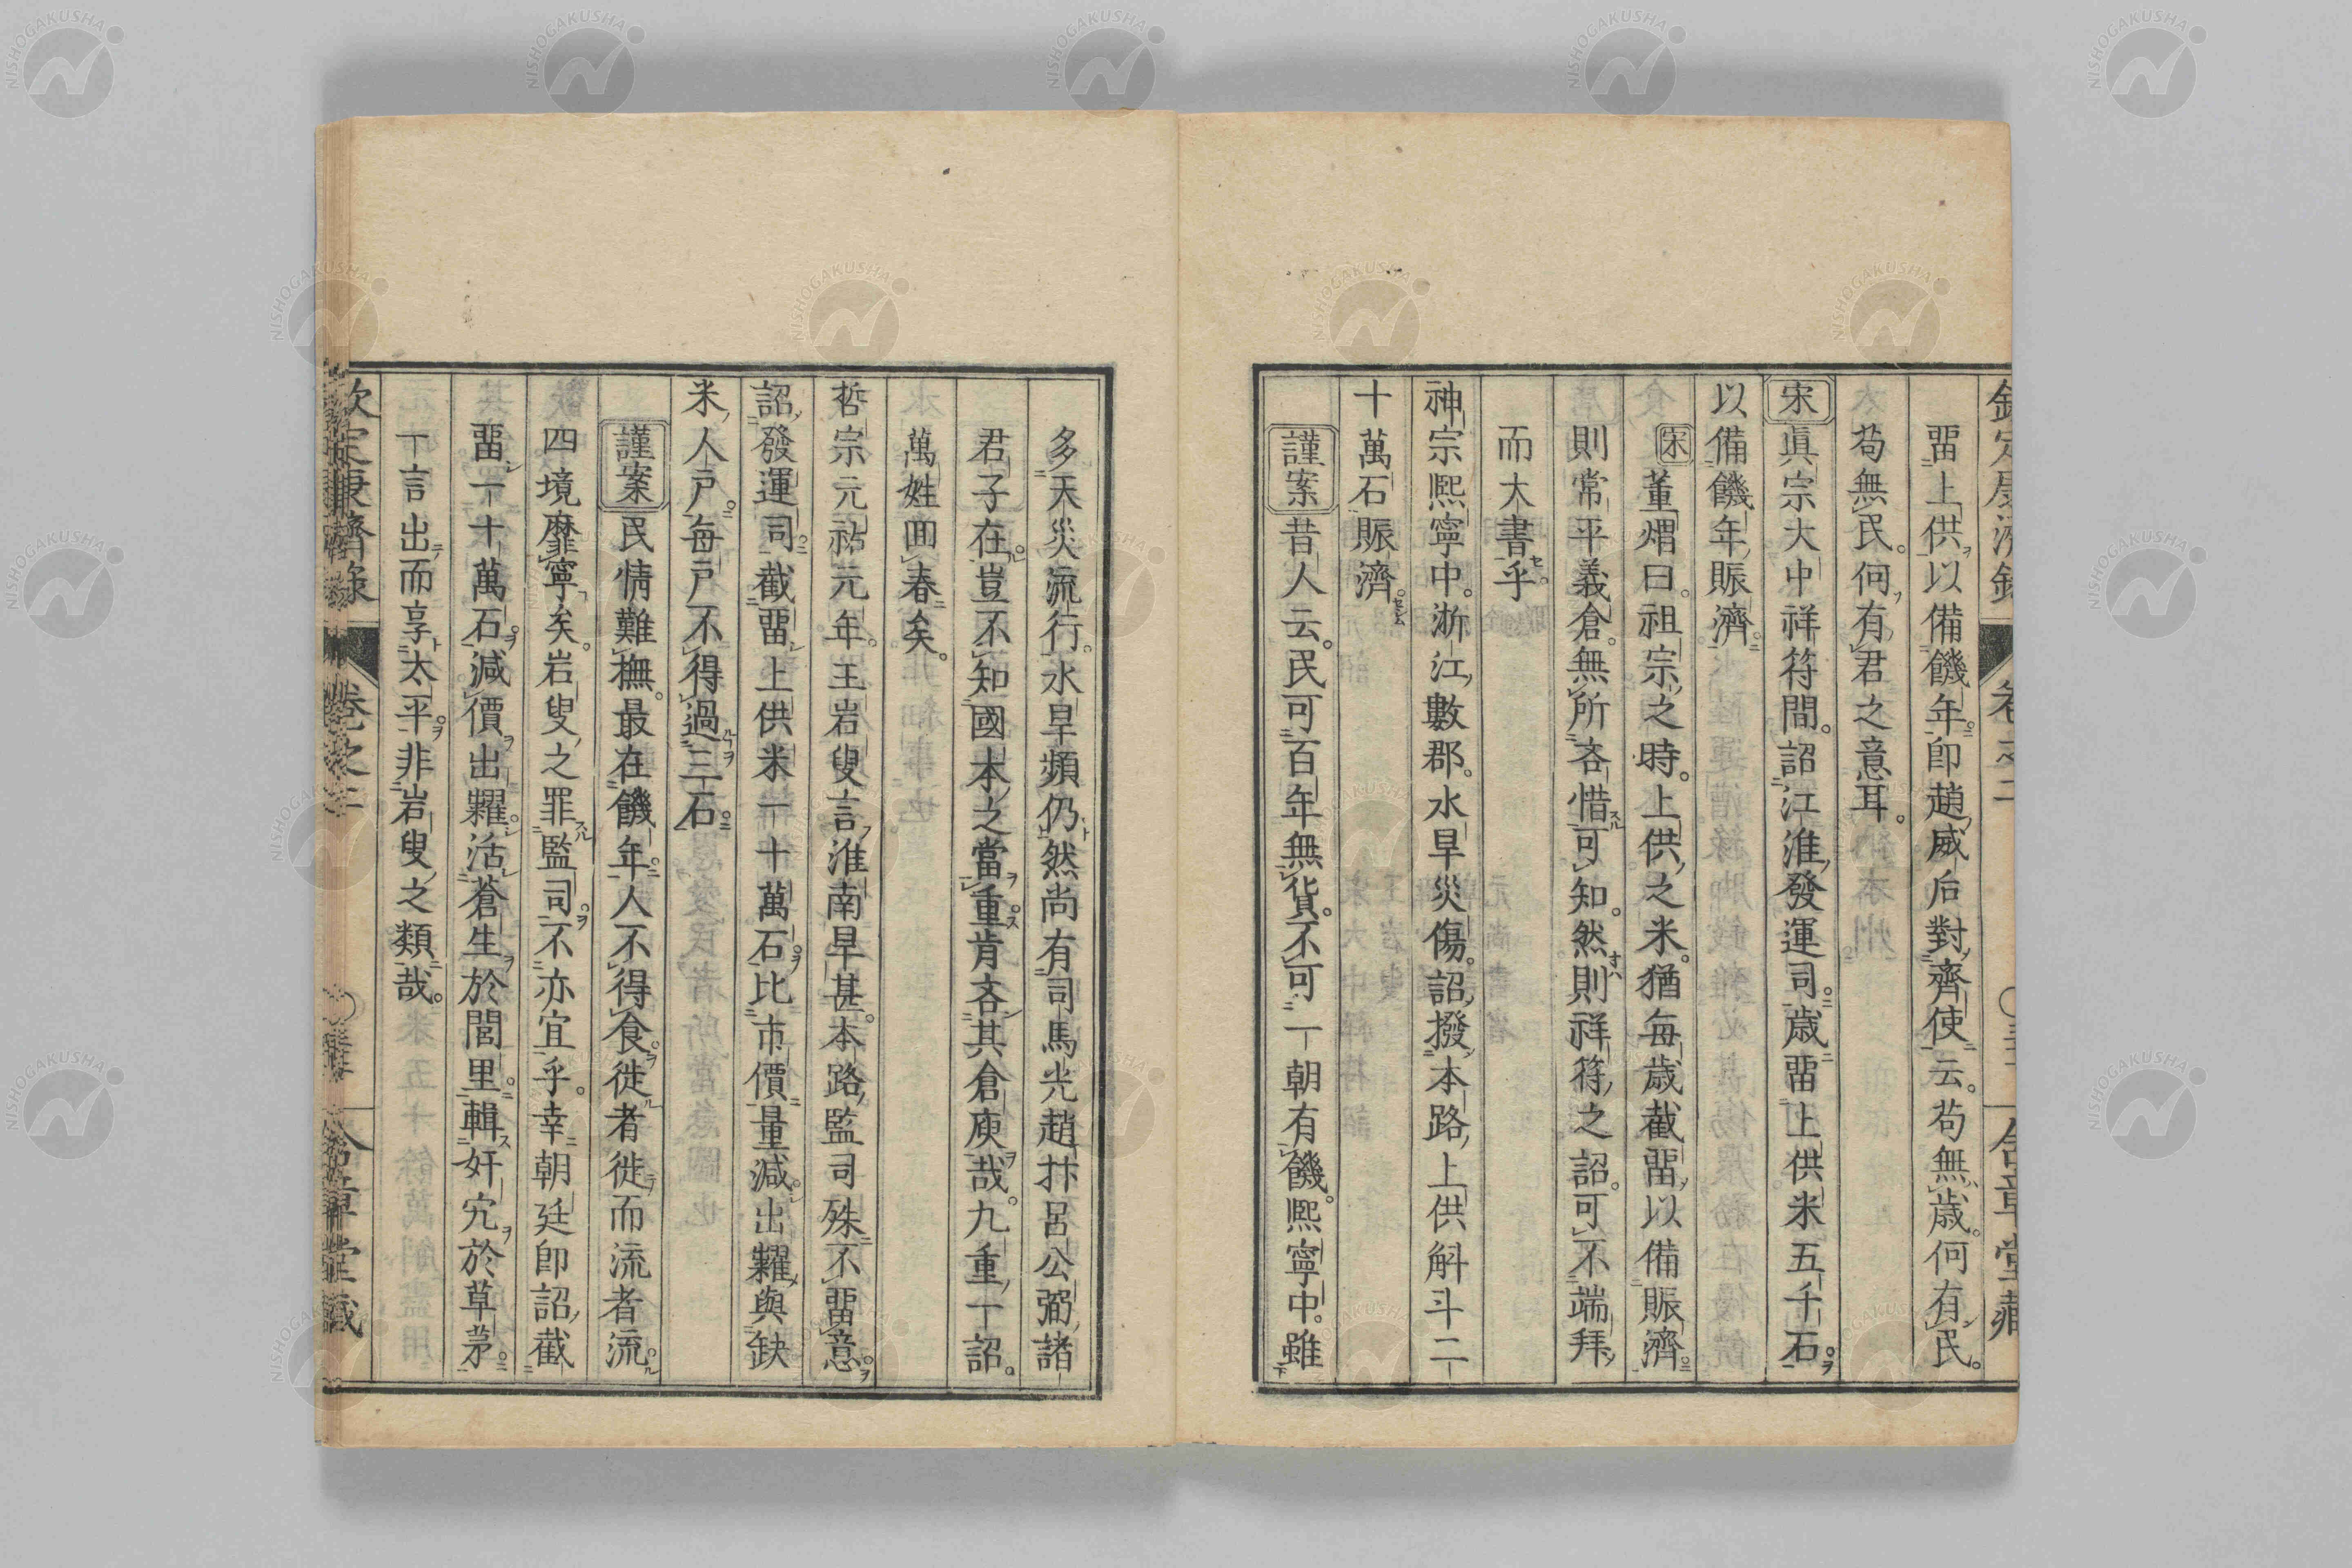 欽定康濟錄 卷之二 含章堂藏
畱上供以備饑年卽趙威后對齊使云苟無歲何有民
苟無民何有君之意耳
宋眞宗大中祥符間詔江淮發運司歲畱上供米五千石
以備饑年賑濟
宋董煟曰祖宗之時上供之米猶每歲截畱以備賑濟
則常平義倉無所吝惜可知然則祥符之詔可不端拜
而大書乎
神宗熙寧中浙江數郡水旱災傷詔撥本路上供斛斗二
十萬石賑濟
謹案昔人云民可百年無貨不可一朝有饑熙寧中雖
多天災流行水旱頻仍然尚有司馬光趙抃呂公弼諸
君子在豈不知國本之當重肯吝其倉庾哉九重一詔
萬姓回春矣
哲宗元祐元年王岩叟言淮南旱甚本路監司殊不畱意
詔發運司截畱上供米一十萬石比市價量減出糶與缺
米人戶每戶不得過三石
謹案民情難撫最在饑年人不得食徙者徙而流者流
四境靡寧矣岩叟之罪監司不亦宜乎幸朝廷卽詔截
畱一十萬石減價出糶活蒼生於閭里輯奸宄於草茅
一言出而享太平非岩叟之類哉
欽定康濟錄 卷之二 含章堂藏
NISHOGAKUSHA